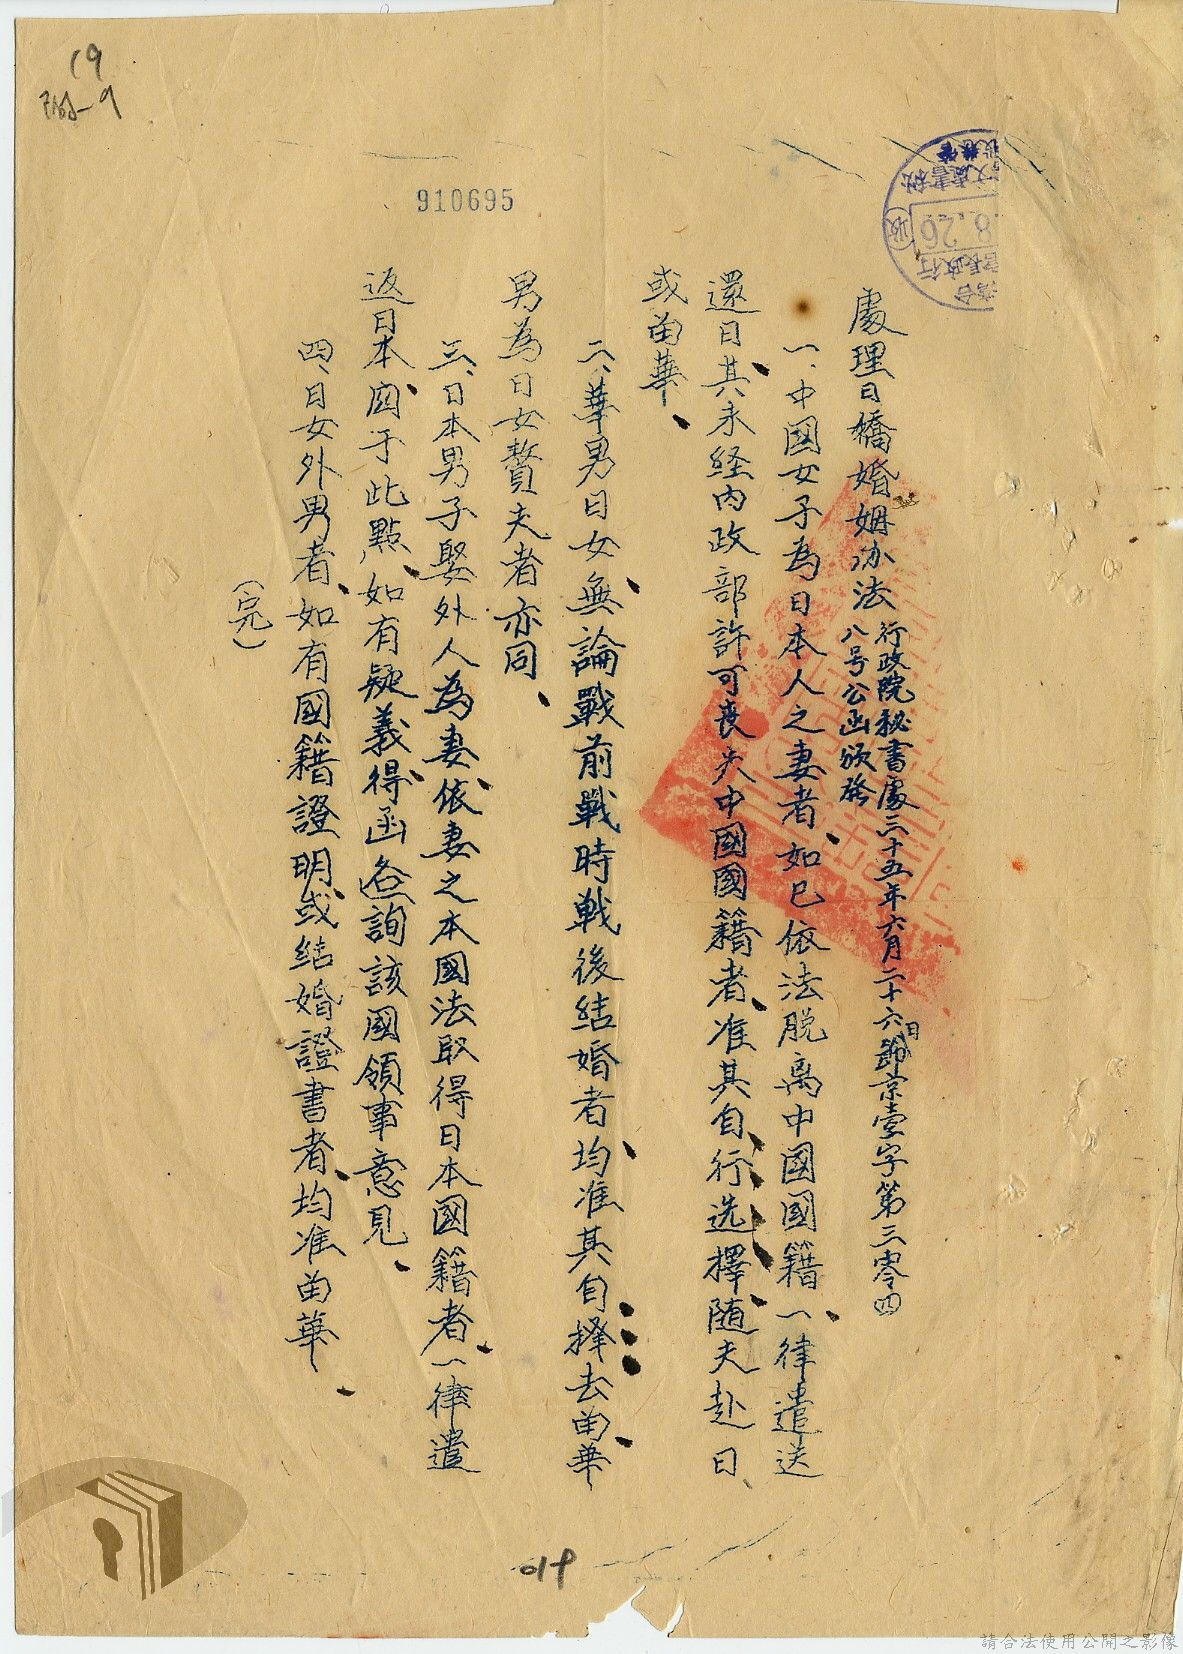 19
910695
處理日僑婚姻办法 行政院秘書處三十五年六月二十六日節京壹字第三零四
八号公函頒發
一、中國女子為日本人之妻者、如已依法脫离中國國籍、一律遣送
還日、其未経内政部許可丧失中國國籍者、准其自行选擇随夫赴日
或留華、
二、華男日女、無論戰前戰時戰後結婚者、均准其自择去留、華
男為日女贅夫者亦同、
三、日本男子娶外人為妻、依妻之本國法取得日本國籍者、一律遣
返日本、囡于此點、如有疑義、得函逕詢該國領事意見、
四、日女外男者、如有國籍證明、或結婚證書者、均准留華、
（完）
019
請合法使用公開之影像